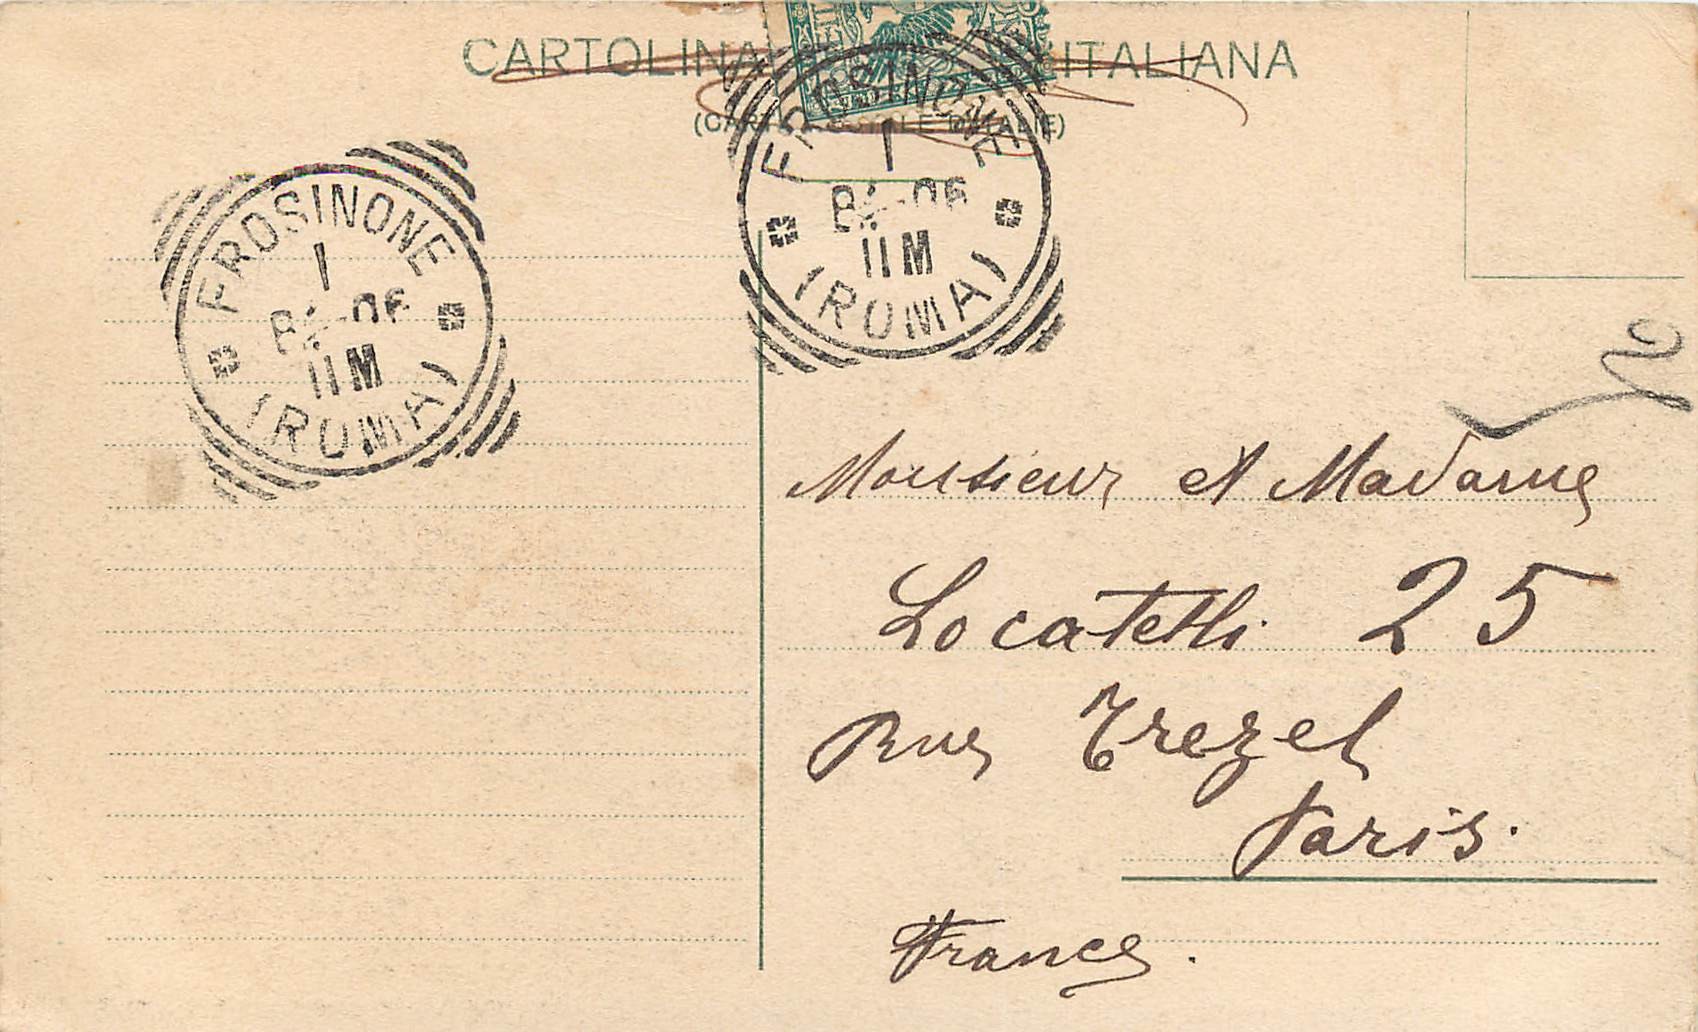 CARTOLINA ITALIANA
FROSINONE
1
06
11M
(ROMA)
FROSINONE
1
06
11M
(ROMA)
Monsieur et Madame
Locatelli 25
Rue Trezel
Paris.
France.